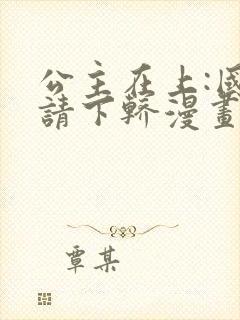 公主在上:國
請下轎漫畫
覃某